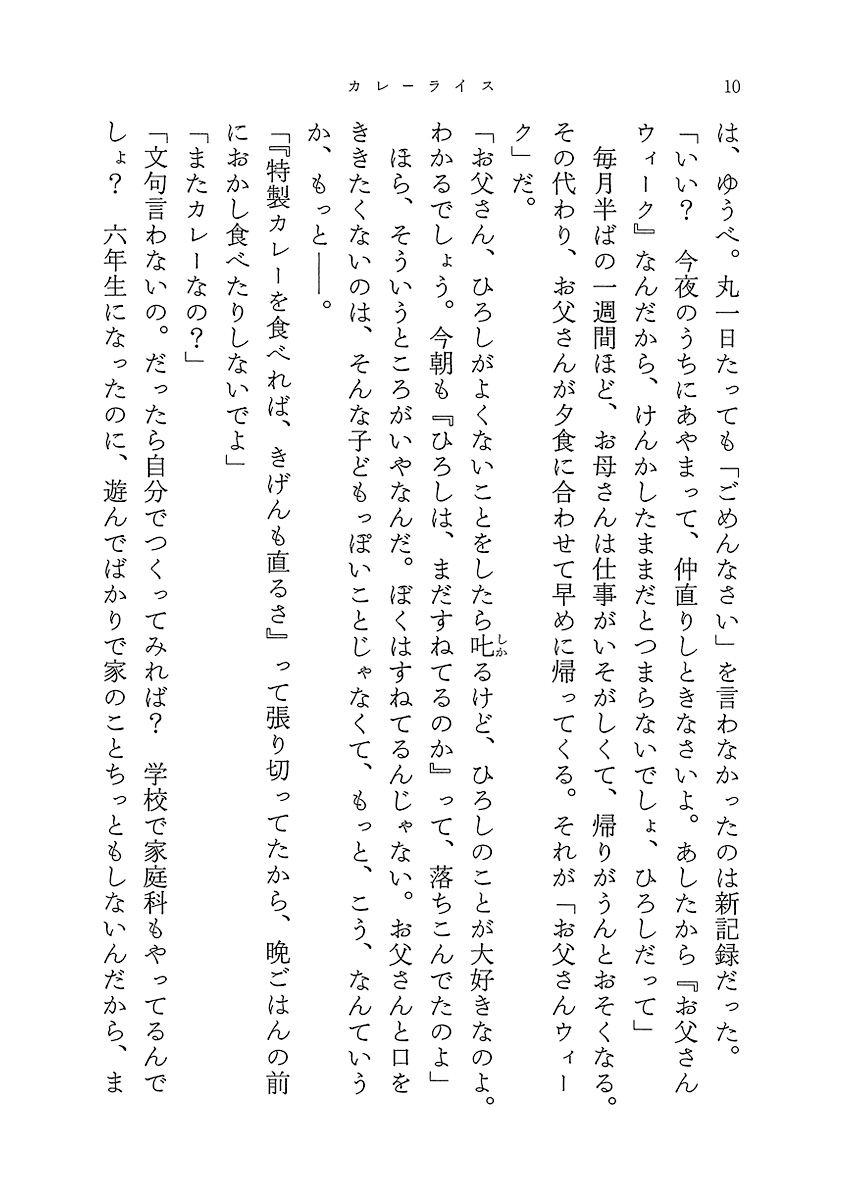 カレーライス
10
は、ゆうべ。丸一日たっても「ごめんなさい」を言わなかったのは新記録だった。
「いい？　今夜のうちにあやまって、仲直りしときなさいよ。あしたから『お父さん
ウィーク』なんだから、けんかしたままだとつまらないでしょ、ひろしだって」
　毎月半ばの一週間ほど、お母さんは仕事がいそがしくて、帰りがうんとおそくなる。
その代わり、お父さんが夕食に合わせて早めに帰ってくる。それが「お父さんウィー
ク」だ。
「お父さん、ひろしがよくないことをしたら叱るけど、ひろしのことが大好きなのよ。
しか
わかるでしょう。今朝も『ひろしは、まだすねてるのか』って、落ちこんでたのよ」
　ほら、そういうところがいやなんだ。ぼくはすねてるんじゃない。お父さんと口を
ききたくないのは、そんな子どもっぽいことじゃなくて、もっと、こう、なんていう
か、もっと――。
「『特製カレーを食べれば、きげんも直るさ』って張り切ってたから、晩ごはんの前
におかし食べたりしないでよ」
「またカレーなの？」
「文句言わないの。だったら自分でつくってみれば？　学校で家庭科もやってるんで
しょ？　六年生になったのに、遊んでばかりで家のことちっともしないんだから、ま